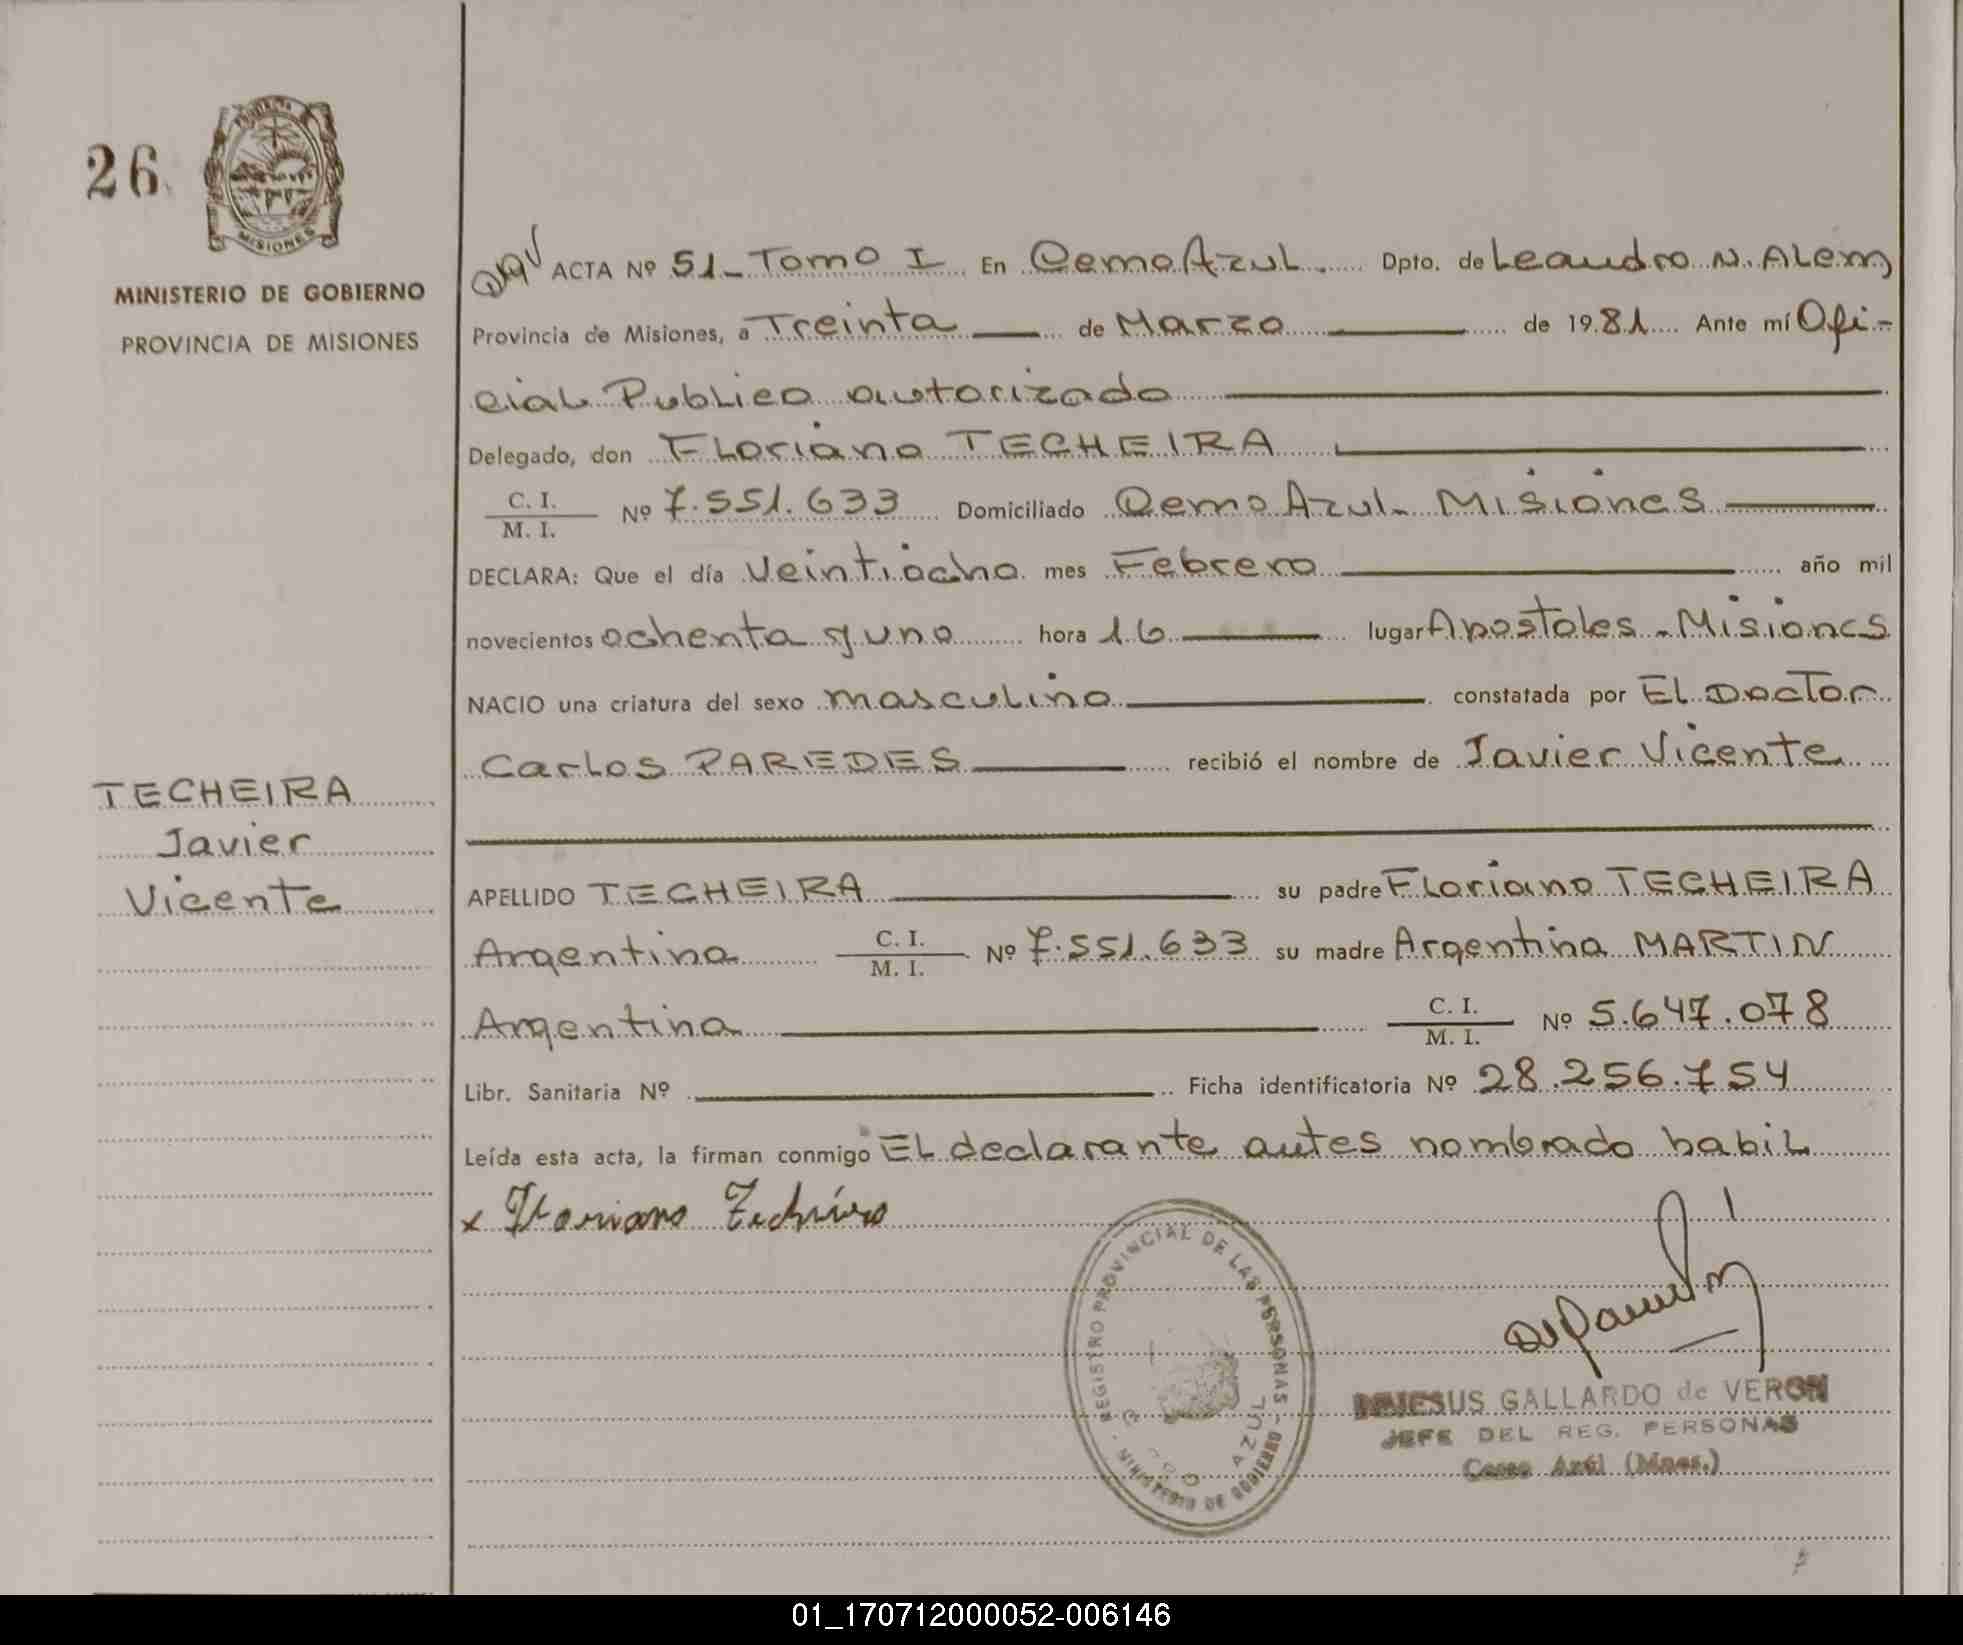 26
PROVINCIA
MISIONES
MINISTERIO DE GOBIERNO
PROVINCIA DE MISIONES
ACTA Nº 51- Tomo I En Cerro Azul. Dpto. de Leandro N. ALem
Provincia de Misiones, a Treinta de Marzo de 1981 Ante mí Ofi-
cial Publico autorizado
Delegado, don Floriano TECHEIRA
C. I.
M. I. Nº 7.551.633 Domiciliado Cerro Azul- Misiones
DECLARA: Que el día Veintiocho mes Febrero año mil
novecientos ochenta y uno hora 16 lugar Apostoles - Misiones
NACIO una criatura del sexo masculino constatada por El Doctor
Carlos PAREDES recibió el nombre de Javier Vicente
TECHEIRA
Javier
Vicente
APELLIDO TECHEIRA su padre Floriano TECHEIRA
Argentina C. I.
M. I. Nº 7.551.633 su madre Argentina MARTIN
Argentina C. I.
M. I. Nº 5.647.078
Libr. Sanitaria Nº Ficha identificatoria Nº 28.256.754
Leída esta acta, la firman conmigo El declarante antes nombrado habil
x Floriano Techeira
REGISTRO PROVINCIAL DE LAS PERSONAS - MINISTERIO DE GOBIERNO -
AZUL
JESUS GALLARDO de VERON
JEFE DEL REG. PERSONAS
Cerro Azul (Mnes.)
01_170712000052-006146